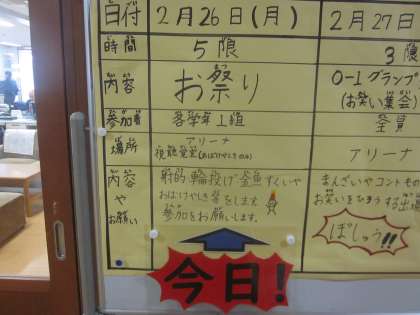 日付 2月26日(月) 2月27日
時間 5限 3限
内容 お祭り 0-1グランプ
(お笑い集会)
参加者 各学年1組 全員
場所 アリーナ アリーナ
視聴覚室(おばけやしきのみ)
内容 射的 輪投げ 金魚すくいや まんざいやコントもの
や おばけやしき等をします お笑いをひろうする出
お願い 参加をお願いします。
ぼしゅう!!
今日!